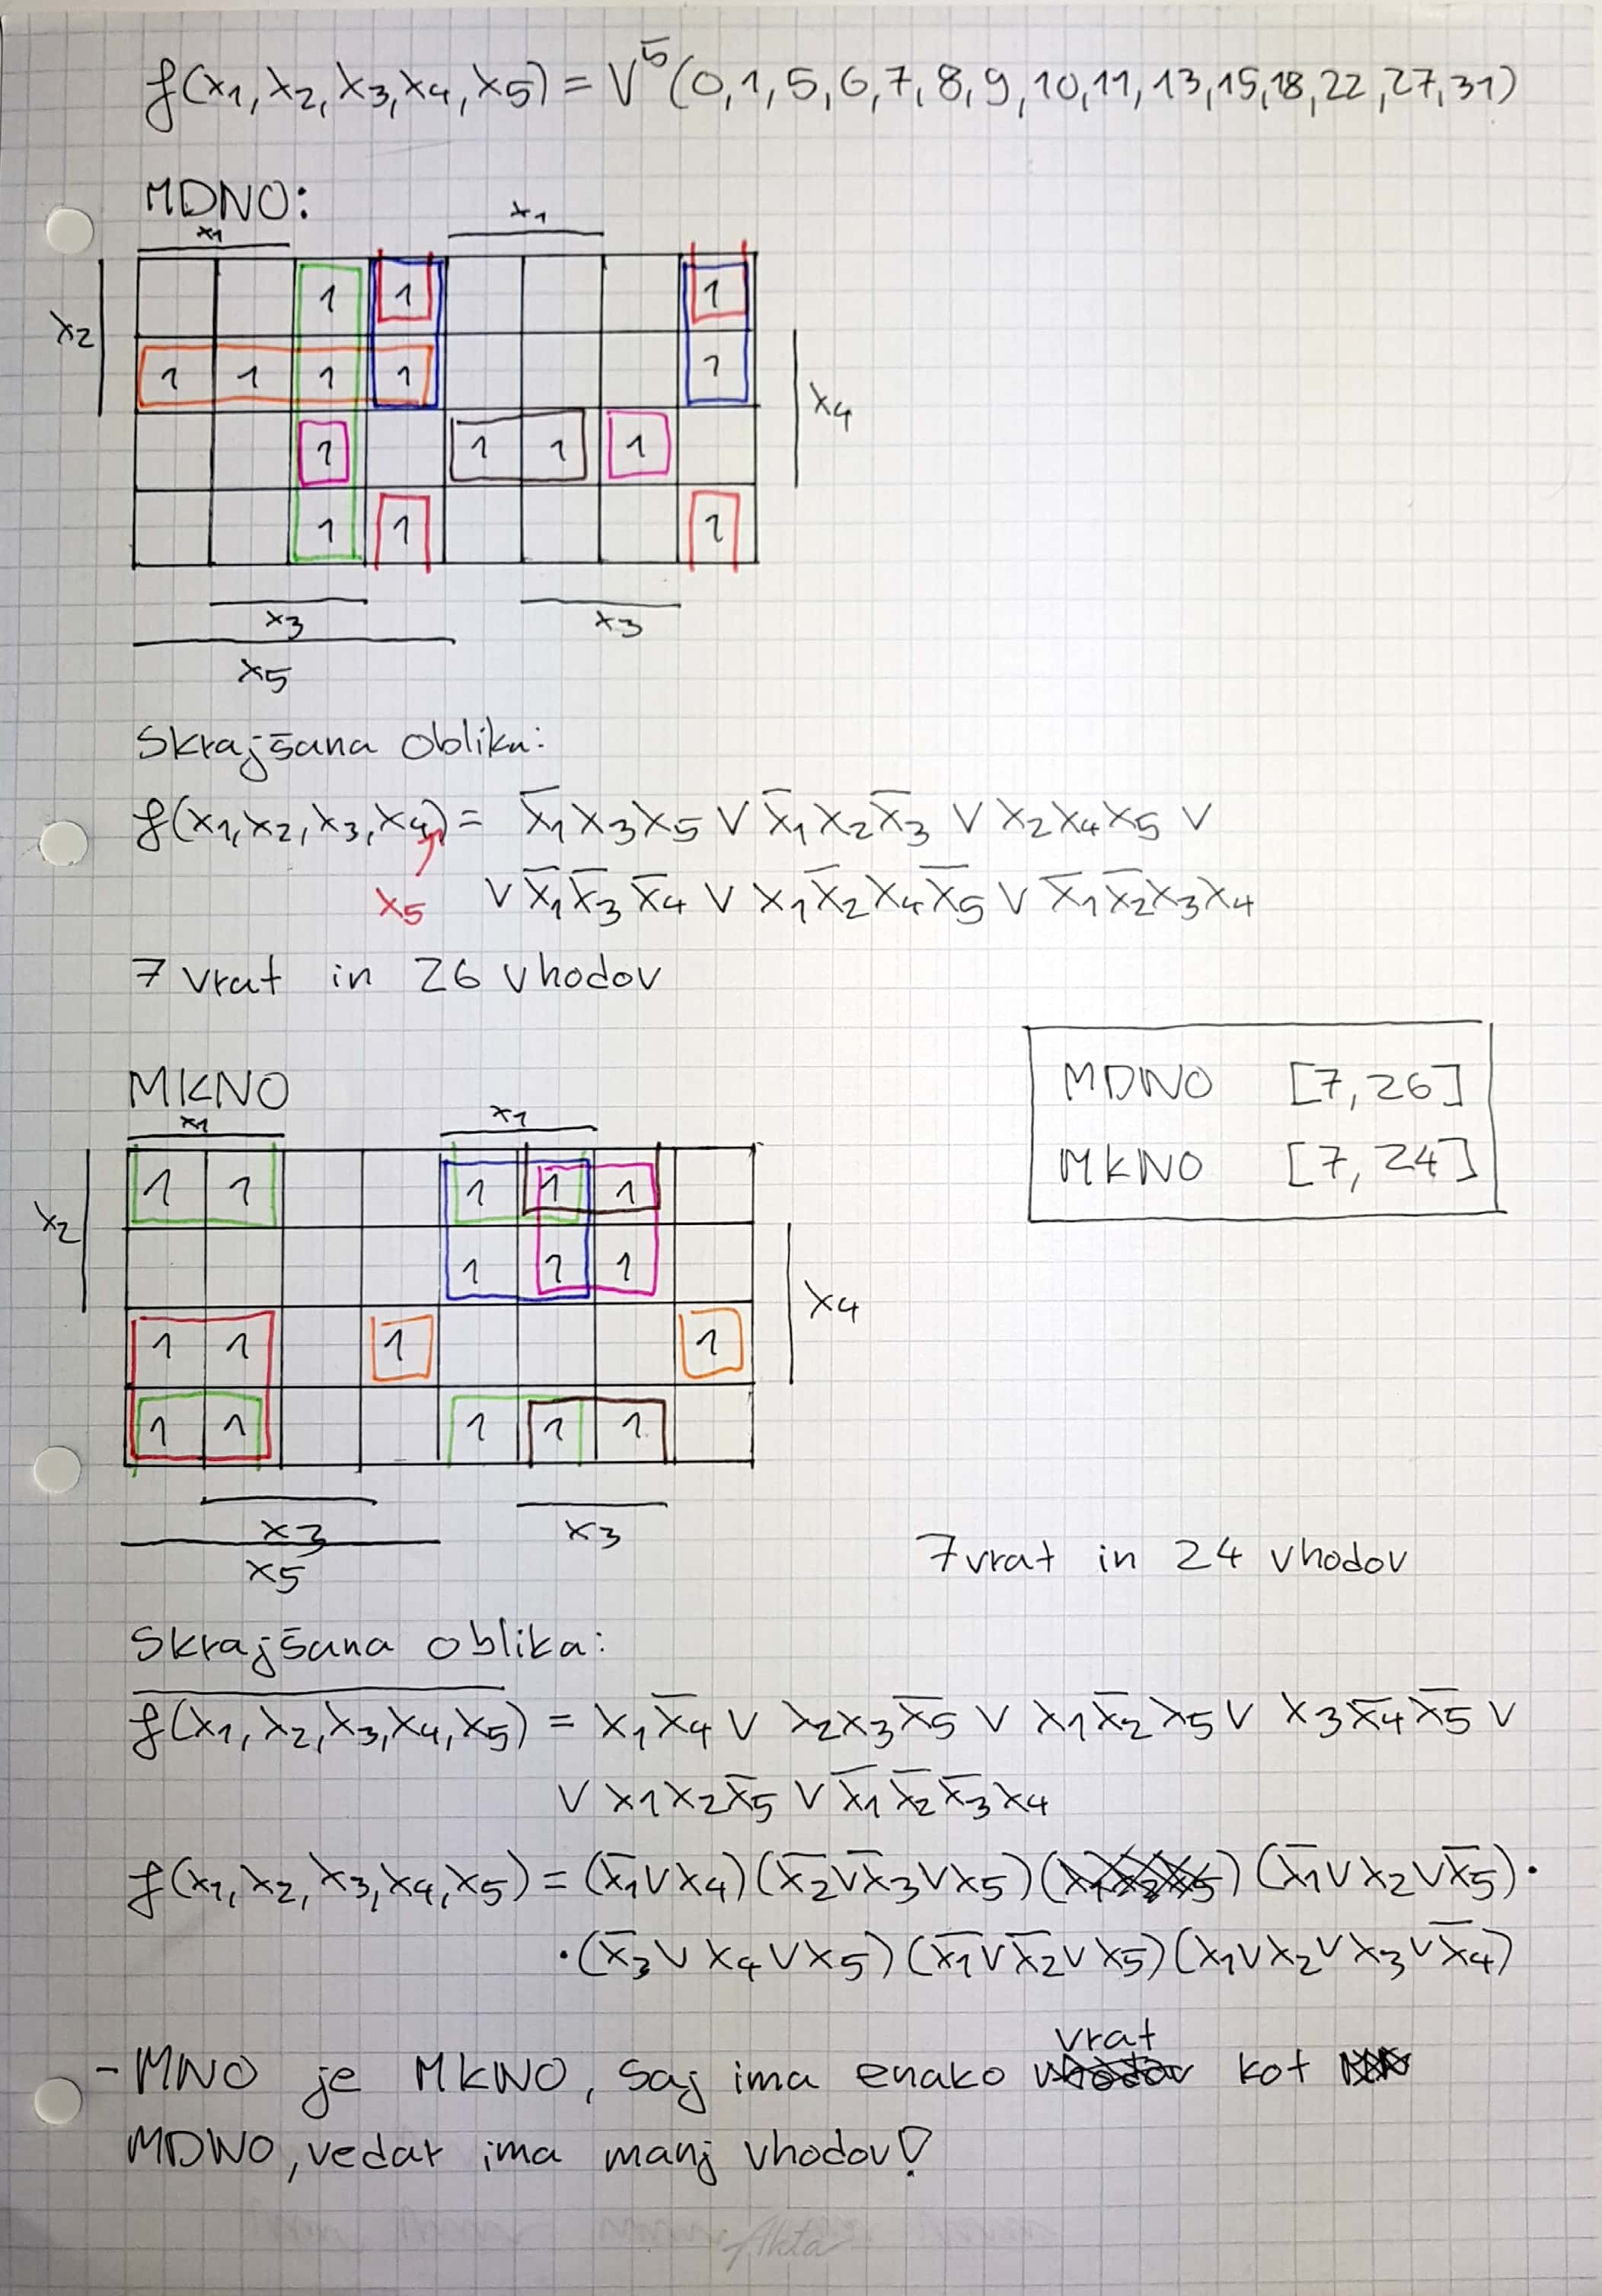 f(x₁, x₂, x₃, x₄, x₅) = V⁵(0, 1, 5, 6, 7, 8, 9, 10, 11, 13, 15, 18, 22, 27, 31)
MDNO:
x₁ x₁
x₂ 1 1 1
1 1 1 1 1
x₄
1 1 1 1
1 1 1
x₃ x₃
x₅
Skrajšana oblika:
f(x₁, x₂, x₃, x₄) = x̅₁x₃x₅ V x̅₁x₂x̅₃ V x₂x₄x₅ V
x₅ V x̅₁x̅₃x̅₄ V x₁x̅₂x₄x̅₅ V x̅₁x̅₂x₃x₄
7 vrat in 26 vhodov
MDNO [7, 26]
MKNO [7, 24]
MKNO
x₁ x₁
x₂ 1 1 1 1 1
1 1 1
x₄
1 1 1 1
1 1 1 1 1
x₃ x₃
x₅
7 vrat in 24 vhodov
Skrajšana oblika:
f̅(̅x̅₁̅,̅ ̅x̅₂̅,̅ ̅x̅₃̅,̅ ̅x̅₄̅,̅ ̅x̅₅̅)̅ = x₁x̅₄ V x₂x₃x̅₅ V x₁x̅₂x₅ V x₃x̅₄x̅₅ V
V x₁x₂x̅₅ V x̅₁x̅₂x̅₃x₄
f(x₁, x₂, x₃, x₄, x₅) = (x̅₁Vx₄)(x̅₂Vx̅₃Vx₅) (x̅₁Vx₂Vx̅₅)·
·(x̅₃Vx₄Vx₅)(x̅₁Vx̅₂Vx₅)(x₁Vx₂Vx₃Vx̅₄)
- MNO je MKNO, saj ima enako vrat kot
MDNO, vedar ima manj vhodov!
Akta